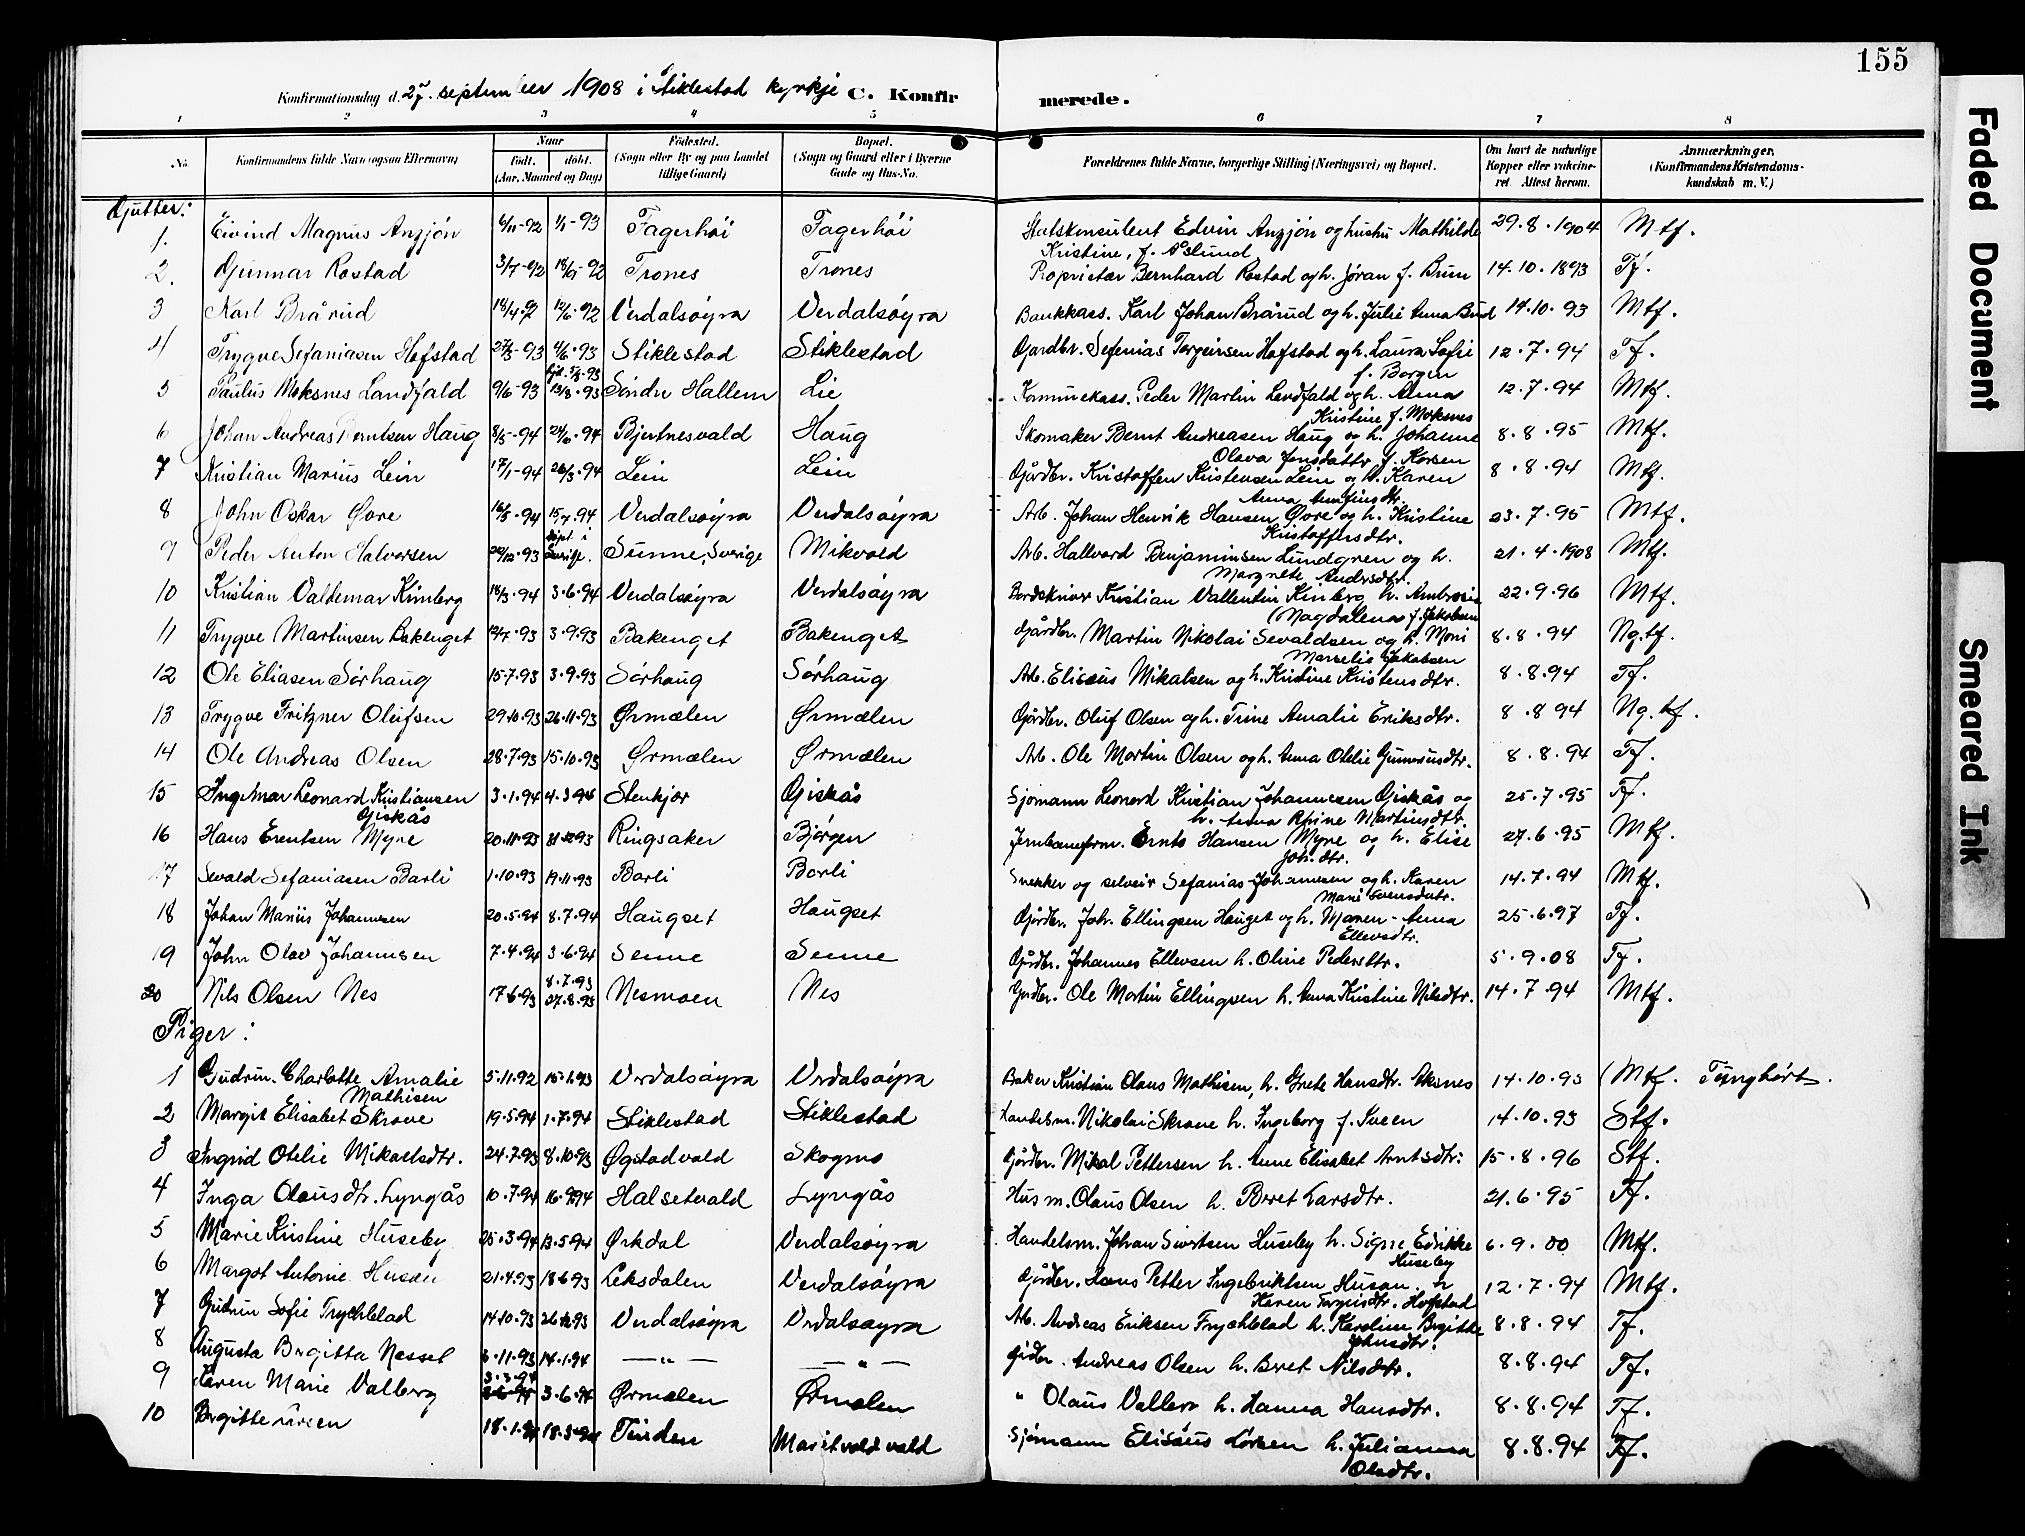 155
Konfirmationsdag d. 27. september 1908 i Stiklestad kyrkje C. Konfirmerede.
1 2 3 4 5 6 7 8
No. Konfirmandens fulde Navn (ogsaa Efternavn) Naar födt. döbt. (Aar, Maaned og Dag) Födested. (Sogn eller By og paa Landet tillige Gaard) Bopæl. (Sogn og Gaard eller i Byerne Gade og Hus-No. Forældrenes fulde Navne, borgerlige Stilling (Næringsvei) og Bopæl. Om havt de naturlige Kopper eller vakcineret Attest herom. Anmærkninger. (Konfirmandens Kristendomskundskab m. V.)
Gutter:
1. Eivind Magnus Anzjøn 6/11-92 1/1-93 Fagerhøi Fagerhøi Statskonsulent Edvin Anzjøn og hustru Mathilde 29.8.1904 Mtf.
Kristine, f. Åslund
2. Gunnar Rostad 3/7-92 Trones Trones Proprietær Bernhard Rostad og h. Jøran f. Brun 14.10.1893 Tf.
3 Karl Brårud 18/4-92 12/6-92 Verdalsøyra Verdalsøyra Bankkass. Karl Johan Brårud og h. Julie Anna 14.10.93 Mtf.
4 Trygve Sefaniasen Hofstad 27/3-93 4/6-93 Stiklestad Stiklestad Gardbr. Sefanias Torgeirsen Hofstad og h. Laura Sofie 12.7.94 Tf.
f. Borgen
5 Paulus Moksnes Landfald 9/6-93 13/8-93 Søndre Hallem Lie Kommunekass. Peder Martin Landfald og h. Anna 12.7.94 Mtf.
Kristine f. Moksnes
6 Johan Andreas Berntsen Haug 8/5-94 24/6-94 Bjertnesvald Haug Skomaker Bernt Andreasen Haug og h. Johanne 8.8.95 Mtf.
Olava Jonsdattr f. Karsen
7 Kristian Marius Lein 17/1-94 26/3-94 Lein Lein Gårdbr. Kristoffer Kristensen Lein og h. Karen 8.8.94 Mtf.
Anna Arnfinsdtr.
8 John Oskar Øvre 16/5-94 15/7-94 Verdalsøyra Verdalsøyra Arb. Johan Henrik Hansen Øvre og h. Kristine 23.7.95 Mtf.
Kristoffersdtr.
9 Peder Anton Halvorsen 20/12-93 døpt i Sverige. Sunne, Sverige Mikvold Arb. Hallvard Benjaminsen Lundgren og h. 21.4.1908 Mtf.
Margrete Andersdtr.
10 Kristian Valdemar Kimberg 18/3-94 3.6.94 Verdalsøyra Verdalsøyra Bordskriver Kristian Vallentin Kinberg h. Ambrosia 22.9.96 Mtf.
Magdalena f. Jakobsen
11 Trygve Martinsen Bakenget 3.9.93 Bakenget Bakenget Gårdbr. Martin Nikolai Sevaldsen og h. 8.8.94 Ng.tf.
Marselie Jakobsen
12 Ole Eliasen Sørhaug 15.7.93 3.9.93 Sørhaug Sørhaug Arb. Eliseus Mikalsen og h. Kristine Kristensdtr. 8.8.94 Tf.
13 Trygve Fritzner Olufsen 29.10.93 26.11.93 Ørmælen Ørmælen Gårdbr. Oluf Olsen og h. Trine Amalie Eriksdtr. 8.8.94 Ng.tf.
14 Ole Andreas Olsen 28.7.93 15.10.93 Ørmælen Ørmælen Arb. Ole Martin Olsen og h. Anna Otelie Gunnerusdtr. 8.8.94 Tf.
15 Ingelmar Leonard Kristiansen 3.1.94 4.3.94 Stenkjær Giskås Sjømann Leonard Kristian Johannesen Giskås og 25.7.95 Tf.
Giskås h. Anna Martinsdtr.
16 Hans Erentsen Myre 20.11.93 31.12.93 Ringsaker Bjørgen Jernbaneform. Ernts Hansen Myre og h. Elise 27.6.95 Mtf.
Joh.dtr.
17 Sevald Sefaniasen Barli 1.10.93 19.11.93 Barli Borli Snekker og selveir Sefanias Johannesen og h. Karen 14.7.94 Mtf.
Marie Svensdatr.
18 Johan Mariüs Johannesen 20.5.94 8.7.94 Haugset Haugset Gårdbr. Joh. Ellingsen Hauget og h. Maren-Anna 25.6.97 Tf.
Ellevsdtr.
19 John Olav Johannesen 7.4.94 3.6.94 Senne Senne Gårdbr. Johannes Ellevsen h. Oline Pedersdtr. 5.9.08 Tf.
20 Nils Olsen Nes 17.6.93 8.7.93 27.8.93 Nesmoen Nes Gardbr. Ole Martin Ellingsen h. Anna Kristine Nilsdtr. 14.7.94 Mtf.
Piger:
1 Gudrun Charlotte Amalie 5.11.92 15.1.93 Verdalsøyra Verdalsøyra Baker Kristian Olaus Mathisen, h. Grete Hansdtr. Aksnes 14.10.93 (Mtf. Tunghørt.
Mathisen
2 Margit Elisabet Skrove 19.5.94 1.7.94 Stiklestad Stiklestad Handelsm. Nikolai Skrove h. Ingeborg f. Sveen 14.10.93 Stf.
3 Ingrid Otelie Mikaelsdtr. 24.7.93 8.10.93 Øgstadvald Skogmo Gårdbr. Mikal Pettersen h. Anne Elisabet Arntsdtr: 15.8.96 Stf.
4 Inga Olausdtr. Lyngås 10.7.94 16.9.94 Halsetvald Lyngås Husm. Olaus Olsen h. Beret Larsdtr. 21.6.95 Tf.
5 Marie Kristine Huseby 25.3.94 13.5.94 Ørkdal Verdalsøyra Handelsm. Johan Sivertsen Huseby h. Signe Edrikke 6.9.00 Mtf.
Huseby
6 Margot Antonie Husan 21.4.93 18.6.93 Leksdalen Verdalsøyra Gårdbr. Hans Petter Ingebriktsen Husan h 12.7.94 Mtf.
Karen Torgersdtr. Hofstad
7 Gudrun Sofie Frychblad 14.10.93 26.12.93 Verdalsøyra Verdalsøyra Arb. Andreas Eriksen Frychblad h. Karoline Brgitte 8.8.94 Tf.
Johnsdtr.
8 Augusta Brgitta Nessel 3.11.93 14.1.94 — „ — — „ — Gårdbr. Andreas Olsen h. Beret Nilsdtr. 8.8.94 Tf.
9 Karen Marie Valberg 3.3.94 3.6.94 Ørmælen Ørmælen " Olaus Valberg h. Hanna Hansdtr. 8.8.94 Tf.
10 Brgitte Larsen 18.1.94 18.3.94 Tinden Maritvold vald Sjømann Eliseus Larsen h. Julianna 8.8.94 Tf.
Olsdtr.
Faded Document
Smeared Ink